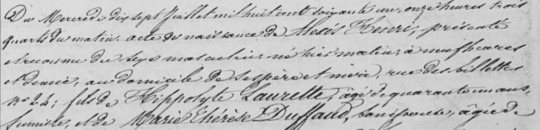 Du Mercredi dix sept Juillet mil huit cent soixante un, onze heures trois
quarts du matin, acte de naissance de Alexis Henri, présenté
et reconnu du sexe masculin, né hier matin, à neuf heures
et demie, au domicile de ses père et mère, rue des billettes
n° 24, fils de Hippolyte Laurette, âgé de quarante un ans,
et de Marie Thérèse Duffaud, son épouse, âgée de